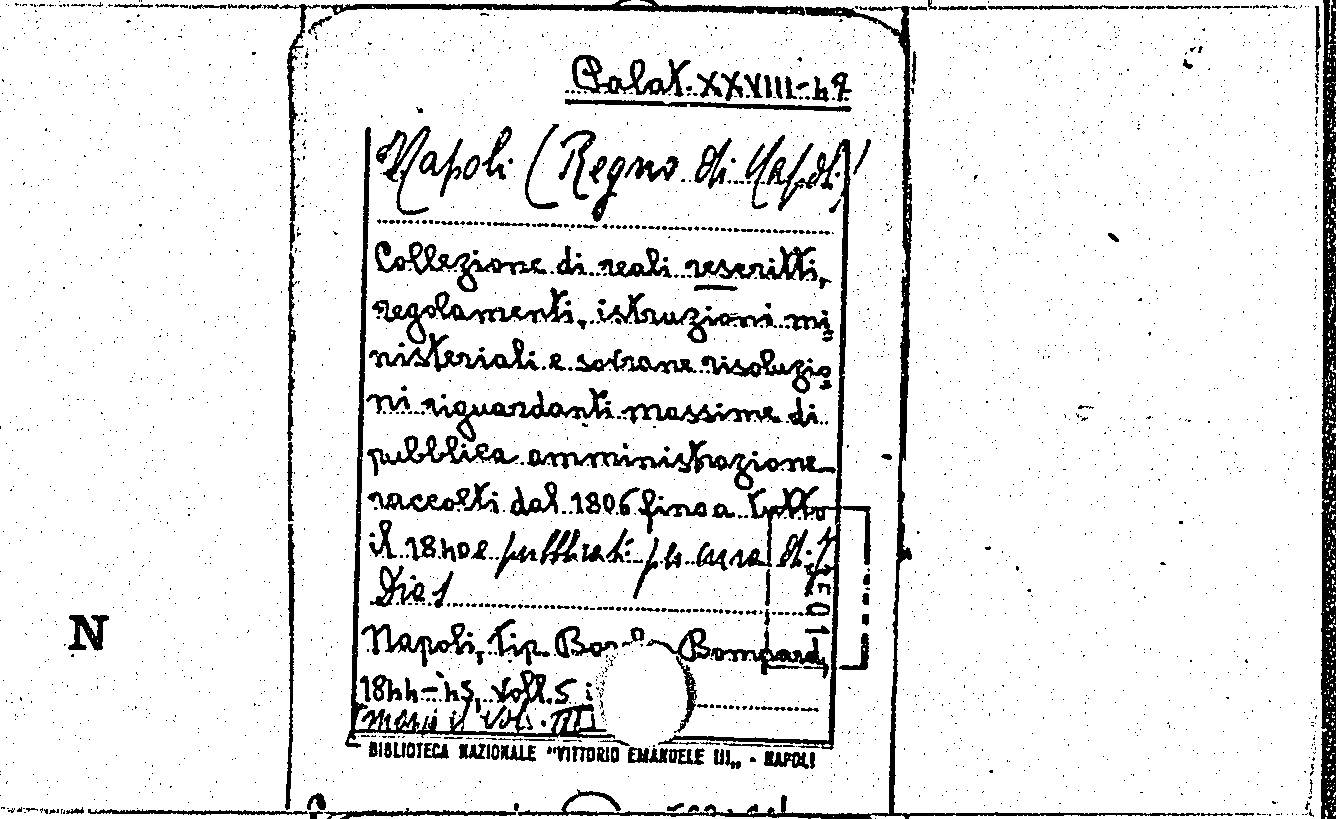 Palat. XXVIII-49
Napoli (Regno di Napoli)
Collezione di reali rescritti,
regolamenti, istruzioni mi
nisteriali e sovrane risoluzio
ni riguardanti massime di
pubblica amministrazione
raccolti dal 1806 fino a tutto
il 1840 e pubblicati per cura di
Dias
Napoli, Tip. Bompard,
1844-45, voll. 5
manca il vol. III
BIBLIOTECA NAZIONALE "VITTORIO EMANUELE III„ - NAPOLI
N